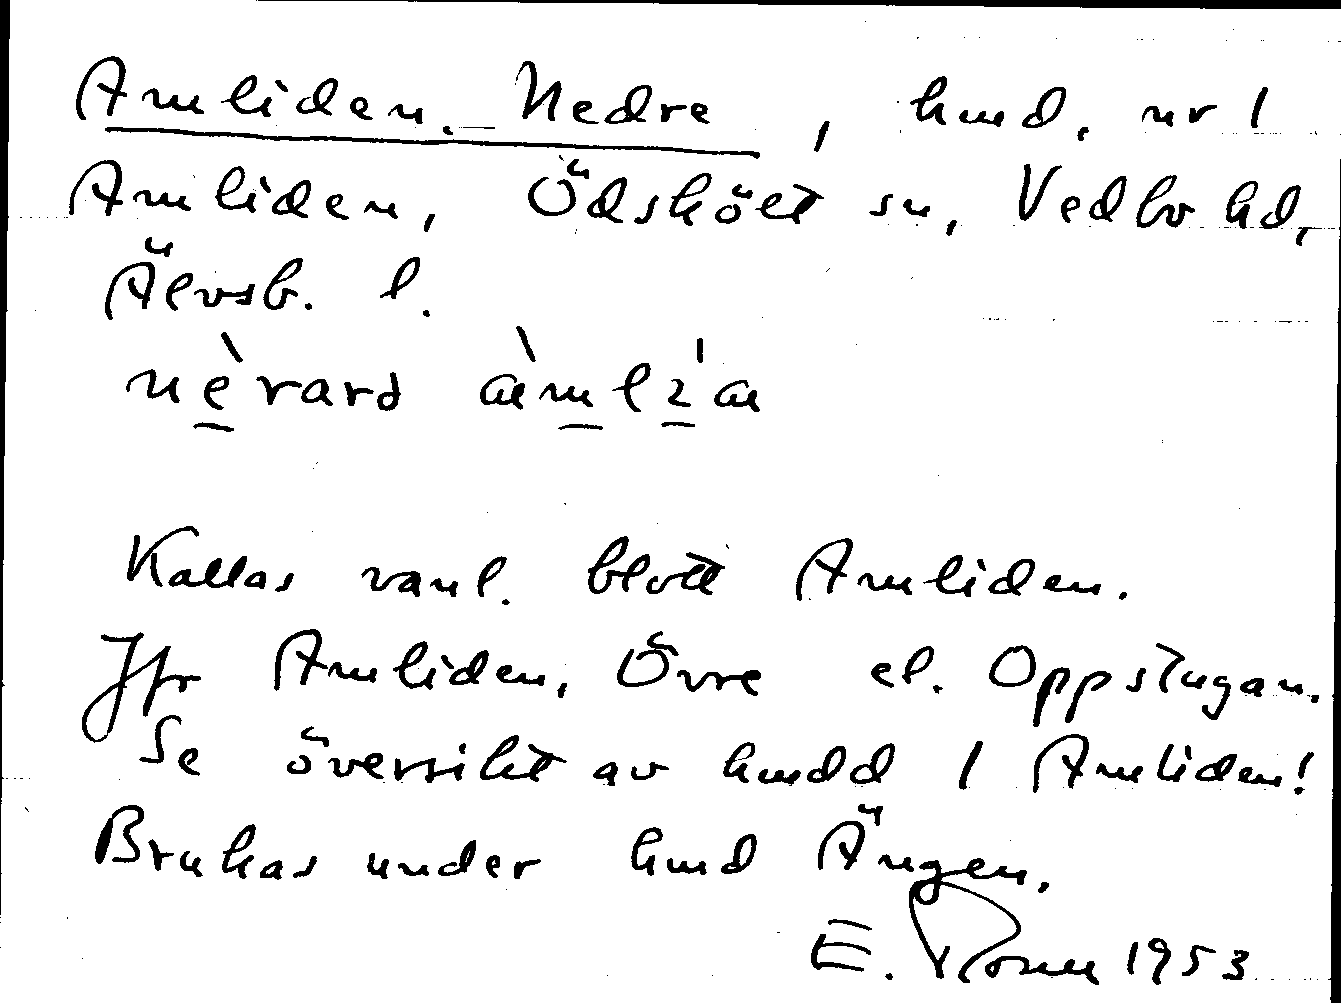 Amliden. Nedre, hmd. nr 1
Amliden, Ödskölt sn, Vedbo hd,
Älvsb. l.
nèrard
Kallas vanl. blott Amliden.
Jfr Amliden, Övre el. Oppstugan.
Se översikt av hmdd 1 Amliden!
Brukas under hmd Ängen.
E. 1953